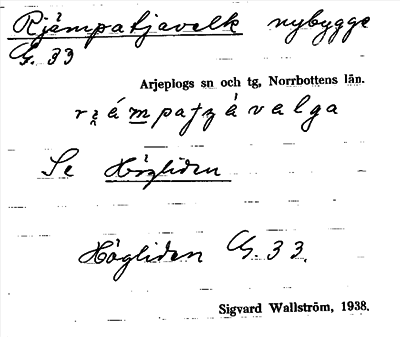 Rjåmpatjavelk nybygge
G. 33
Arjeplogs sn och tg, Norrbottens län.
Se Högliden
Högliden G. 33.
Sigvard Wallström, 1938.